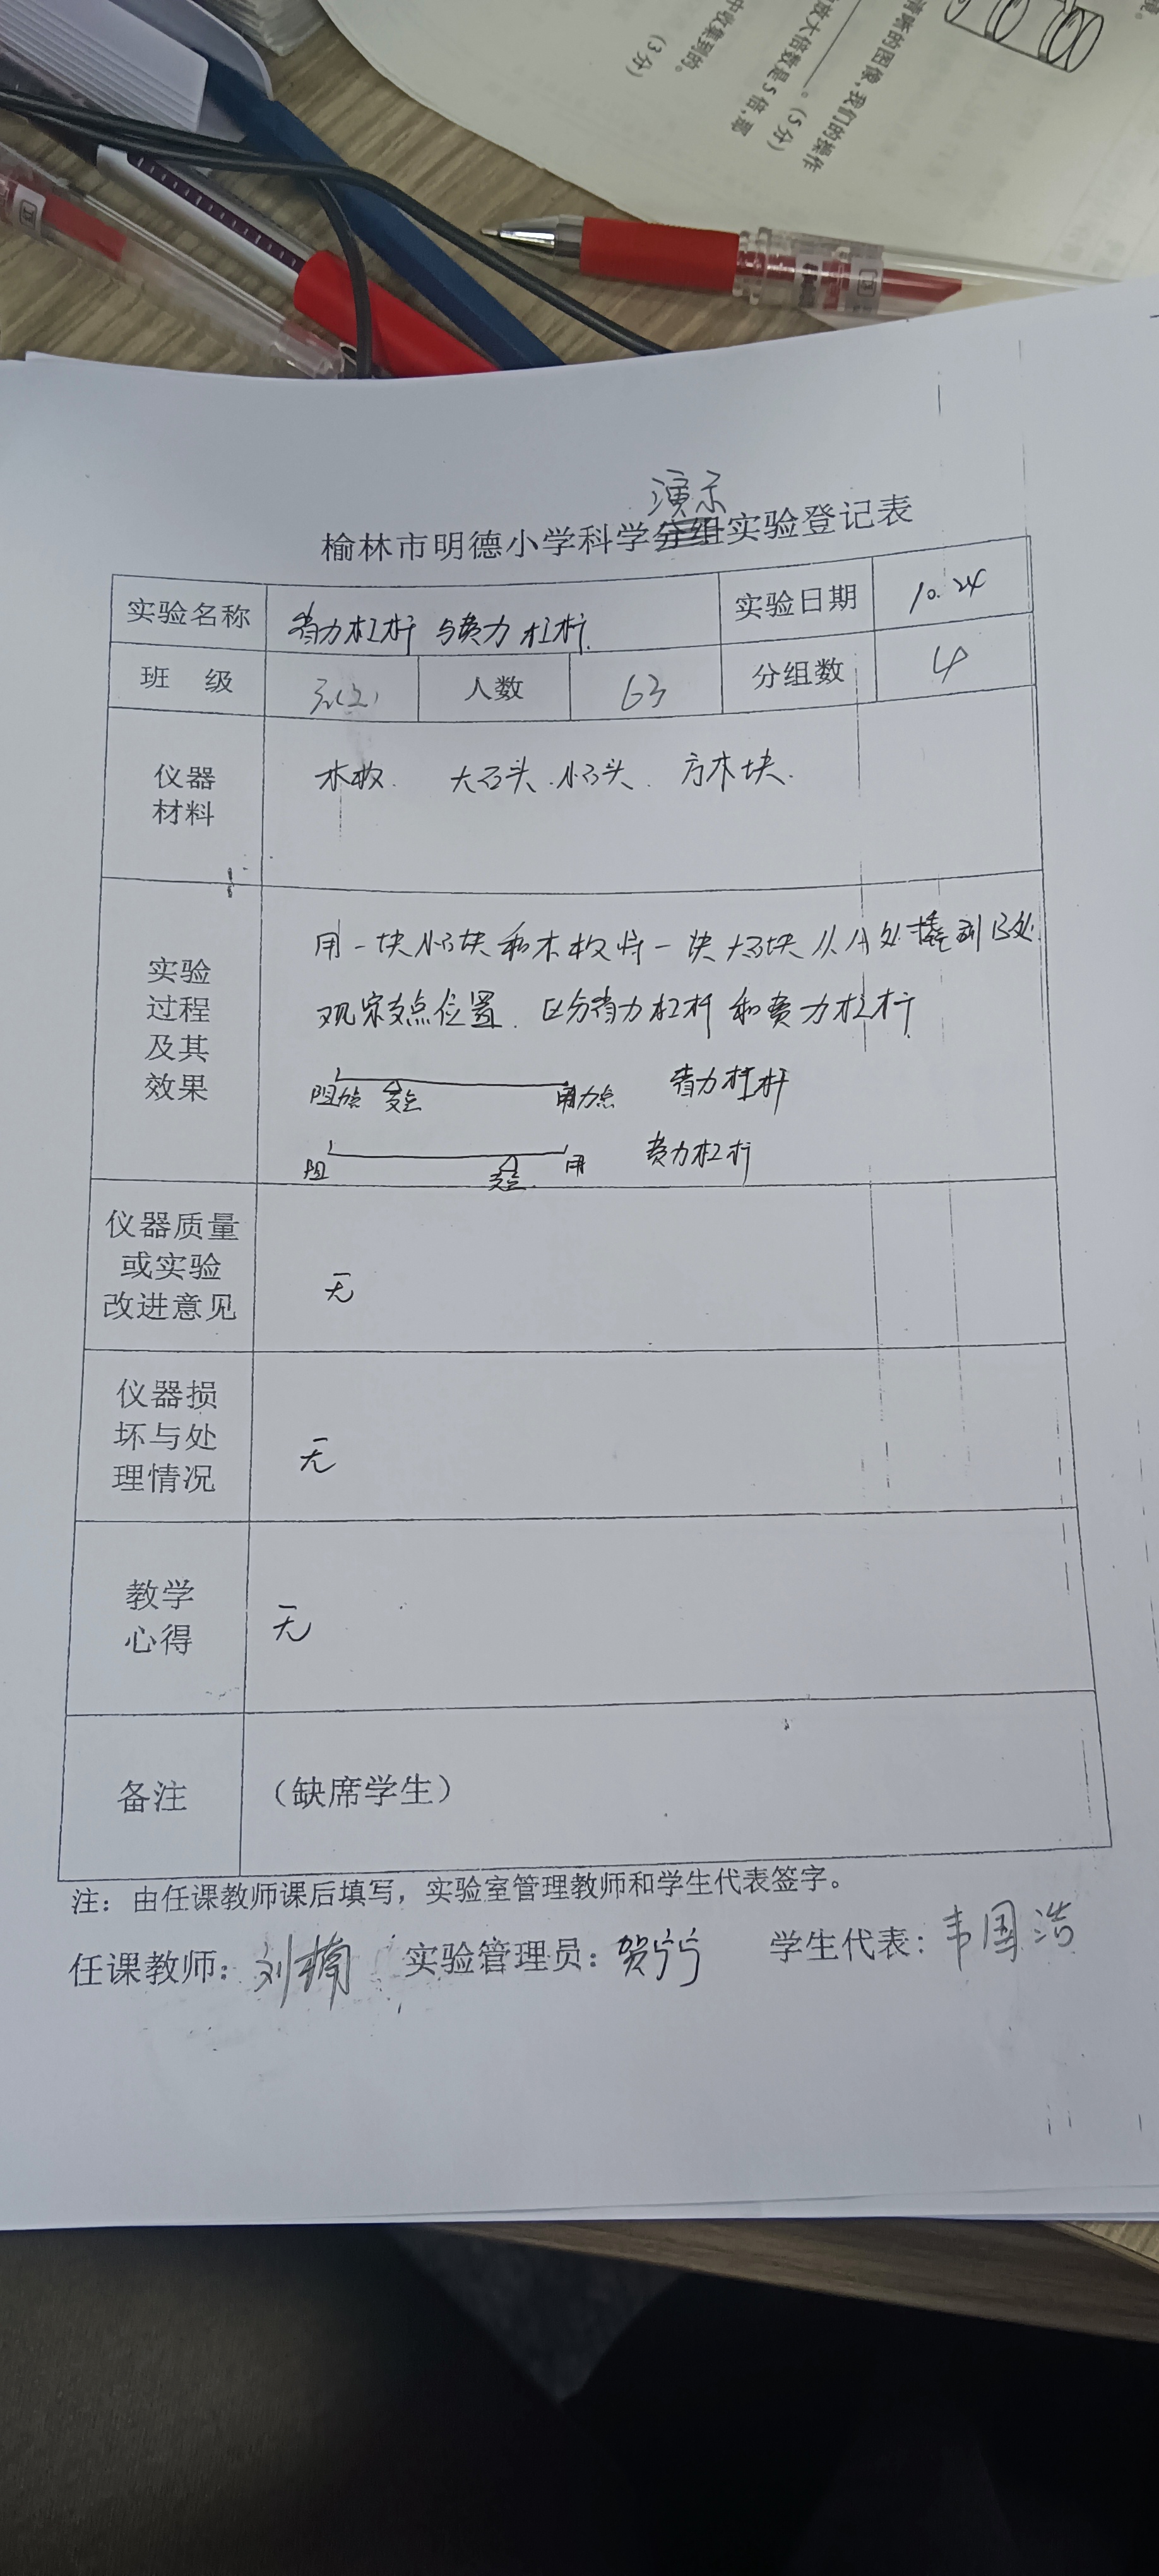 中收集到的。
(3分)
放大倍数是5倍,那
。(5分)
清晰的图像,我们的操作
演示
榆林市明德小学科学分组实验登记表
实验名称 省力杠杆与费力杠杆. 实验日期 10.24
班 级 人数 63 分组数 4
仪器材料 木板. 大石头.小石头. 方木块.
实验过程及其效果
用一块小石块和木板将一块大石块从A处撬到B处.
观察支点位置.区分省力杠杆和费力杠杆
阻力点 支点 用力点 省力杠杆
阻 支点. 用 费力杠杆
仪器质量或实验改进意见 无
仪器损坏与处理情况 无
教学心得 无
备注 (缺席学生)
注: 由任课教师课后填写,实验室管理教师和学生代表签字。
任课教师: 刘楠 实验管理员: 贺宁宁 学生代表: 韦国浩